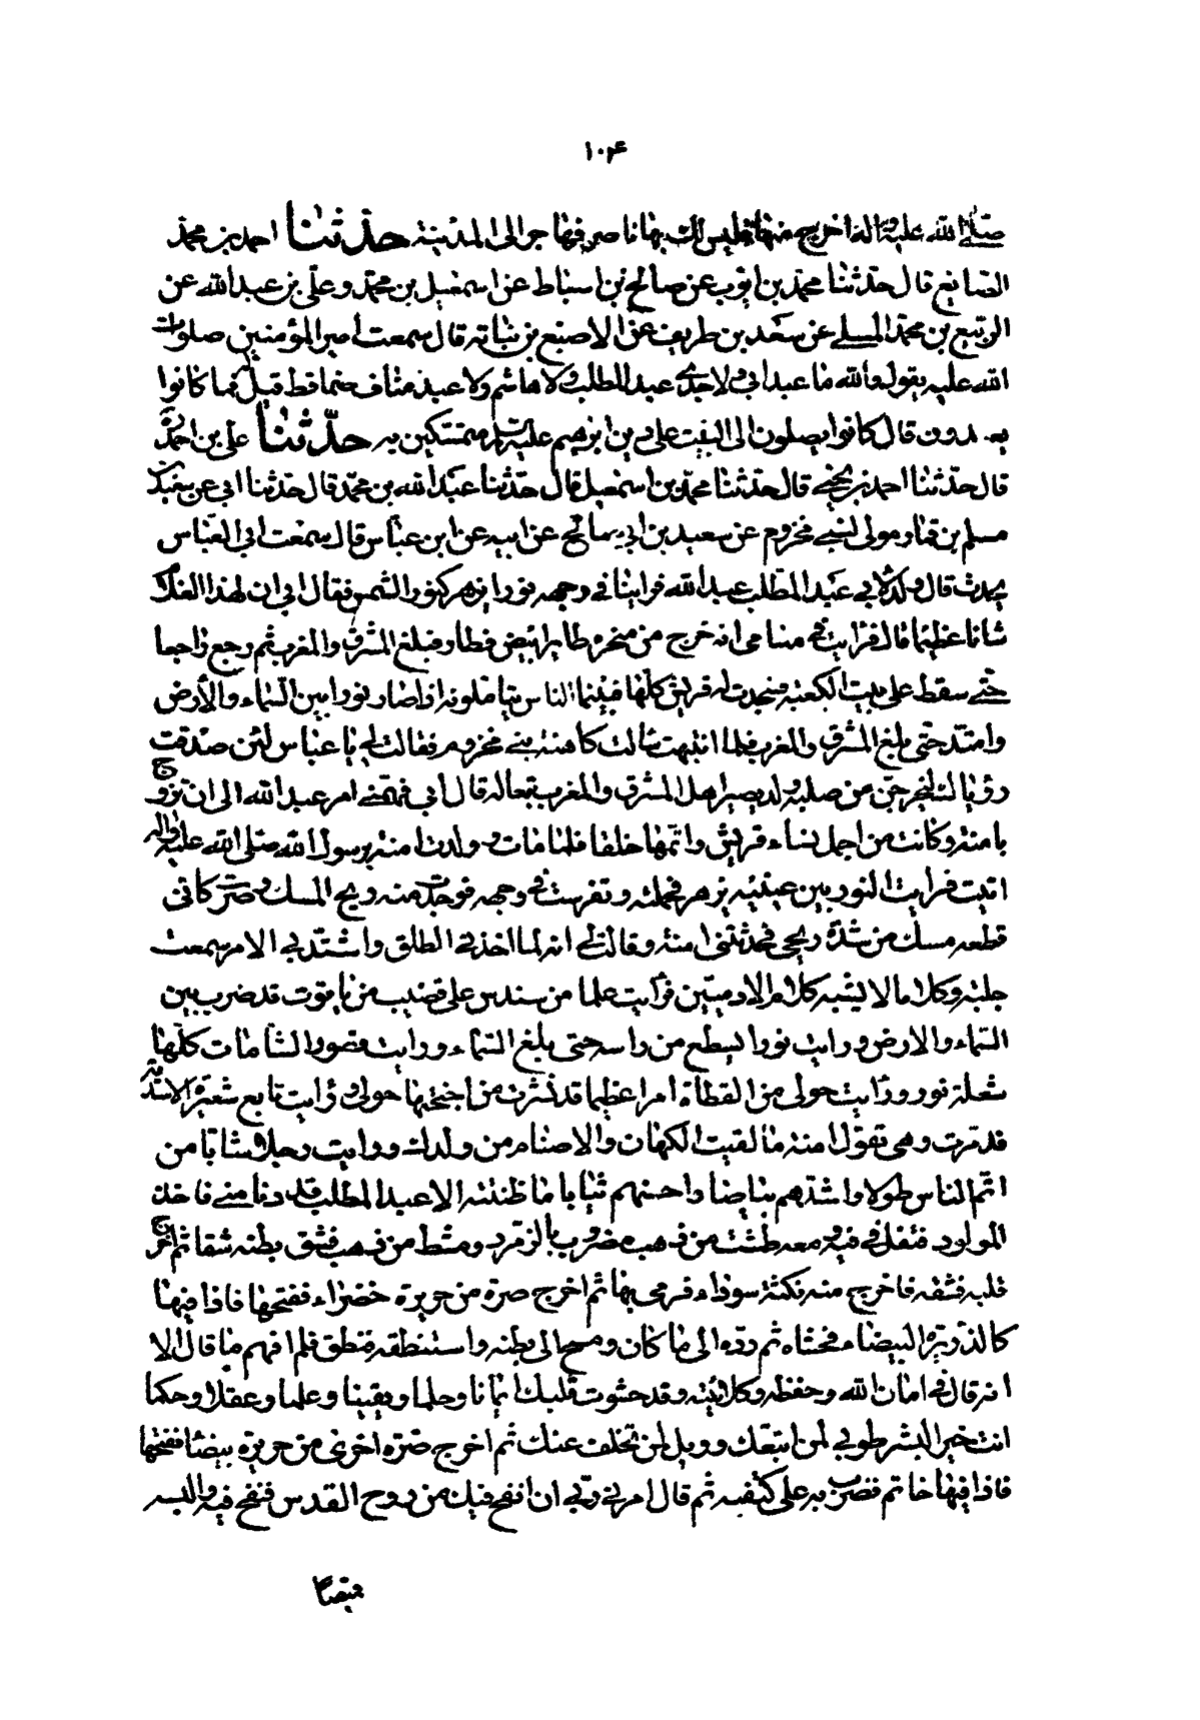 ۱۰۴
صلى الله عليه واله اخرج منها فليس لك بها ناصر فهاجر الى المدينة حدثنا احمد بن محمد
الصايغ قال حدثنا محمد بن ايوب عن صالح بن اسباط عن اسمعيل بن محمد وعلى بن عبد الله عن
الربيع بن محمد المسلى عن سعد بن طريف عن الاصبغ بن نباته قال سمعت امير المؤمنين صلوات
الله عليه يقول والله ما عبد ابى ولا جدى عبد المطلب ولا هاشم ولا عبد مناف صنما قط قيل فما كانوا
يعبدون قال كانوا يصلون الى البيت على دين ابرهيم عليه السلم متمسكين به حدثنا على بن احمد ره
قال حدثنا احمد بن يحيى قال حدثنا محمد بن اسمعيل قال حدثنا عبد الله بن محمد قال حدثنا ابى عن سعيد بن
مسلم بن قناد مولى لبنى مخزوم عن سعيد بن ابى صالح عن ابيه عن ابن عباس قال سمعت ابى العباس
يحدث قال ولد لابى عبد المطلب عبد الله فراينا فى وجهه نورا يزهر كنور الشمس فقال ابى ان لهذا الغلام
شانا عظيما قال فرايت فى منامى انه خرج من منخره طاير ابيض فطار فبلغ المشرق والمغرب ثم رجع راجعا
حتى سقط على بيت الكعبة فسجدت له قريش كلها فبينما الناس يتاملونه اذا صار نورا بين السماء والأرض
وامتد حتى بلغ المشرق والمغرب فلما انتبهت سالت كاهنة بنى مخزوم فقالت لى يا عباس لئن صدقت
رؤياك ليخرجن من صلبه ولد يصير اهل المشرق والمغرب تبعا له قال ابى فهمنى امر عبد الله الى ان تزوج
بامنة وكانت من اجمل نساء قريش واتمها خلقا فلما مات وولدت امنة برسول الله صلى الله عليه واله
اتيت فرايت النور بين عينيه يزهر فحملته وتفرست فى وجهه فوجدت منه ريح المسك وصرت كانى
قطعه مسك من شدة ريحى فحدثتنى امنة وقالت لى انه لما اخذنى الطلق واشتد بى الامر سمعت
جلبة وكلاما لا يشبه كلام الادميين فرأيت علما من سندس على قضيب من ياقوت قد ضرب بين
السماء والارض ورايت نورا يسطع من راسه حتى بلغ السماء ورايت قصور الشامات كلها
شعلة نور ورأيت حولى من القطاة امرا عظيما قد نشرت من اجنحتها حولى ورأيت تابع شعيرة الاسدية
قد مرت وهى تقول امنة ما لقيت الكهان والاصنام من ولدك ورايت رجلا شابا من
اتم الناس طولا واشدهم بياضا واحسنهم ثيابا ما ظننته الا عبد المطلب قد دنا منى فاخذ
المولود فتفل فى فيه ومعه طشت من ذهب مضروب بالزمرد ومشط من ذهب فشق بطنه شقا ثم اخرج
قلبه فشقه فاخرج منه نكتة سوداء فرمى بها ثم اخرج صرة من حريرة خضراء ففتحها فاذا فيها
كالذريرة البيضاء فحشاه ثم رده الى ما كان ومسح الى بطنه واستنطقه فنطق فلم افهم ما قال الا
انه قال فى امان الله وحفظه وكلائته وقد حشوت قلبك ايمانا وحلما ويقينا وعلما وعقلا وحكما
انت خير البشر طوبى لمن اتبعك وويل لمن تخلف عنك ثم اخرج صرة اخرى من حريرة بيضا ففتحها
فاذا فيها خاتم فضرب به على كتفيه ثم قال امرنى ربى ان انفخ فيك من روح القدس فنفخ فيه والبسه
قميصا